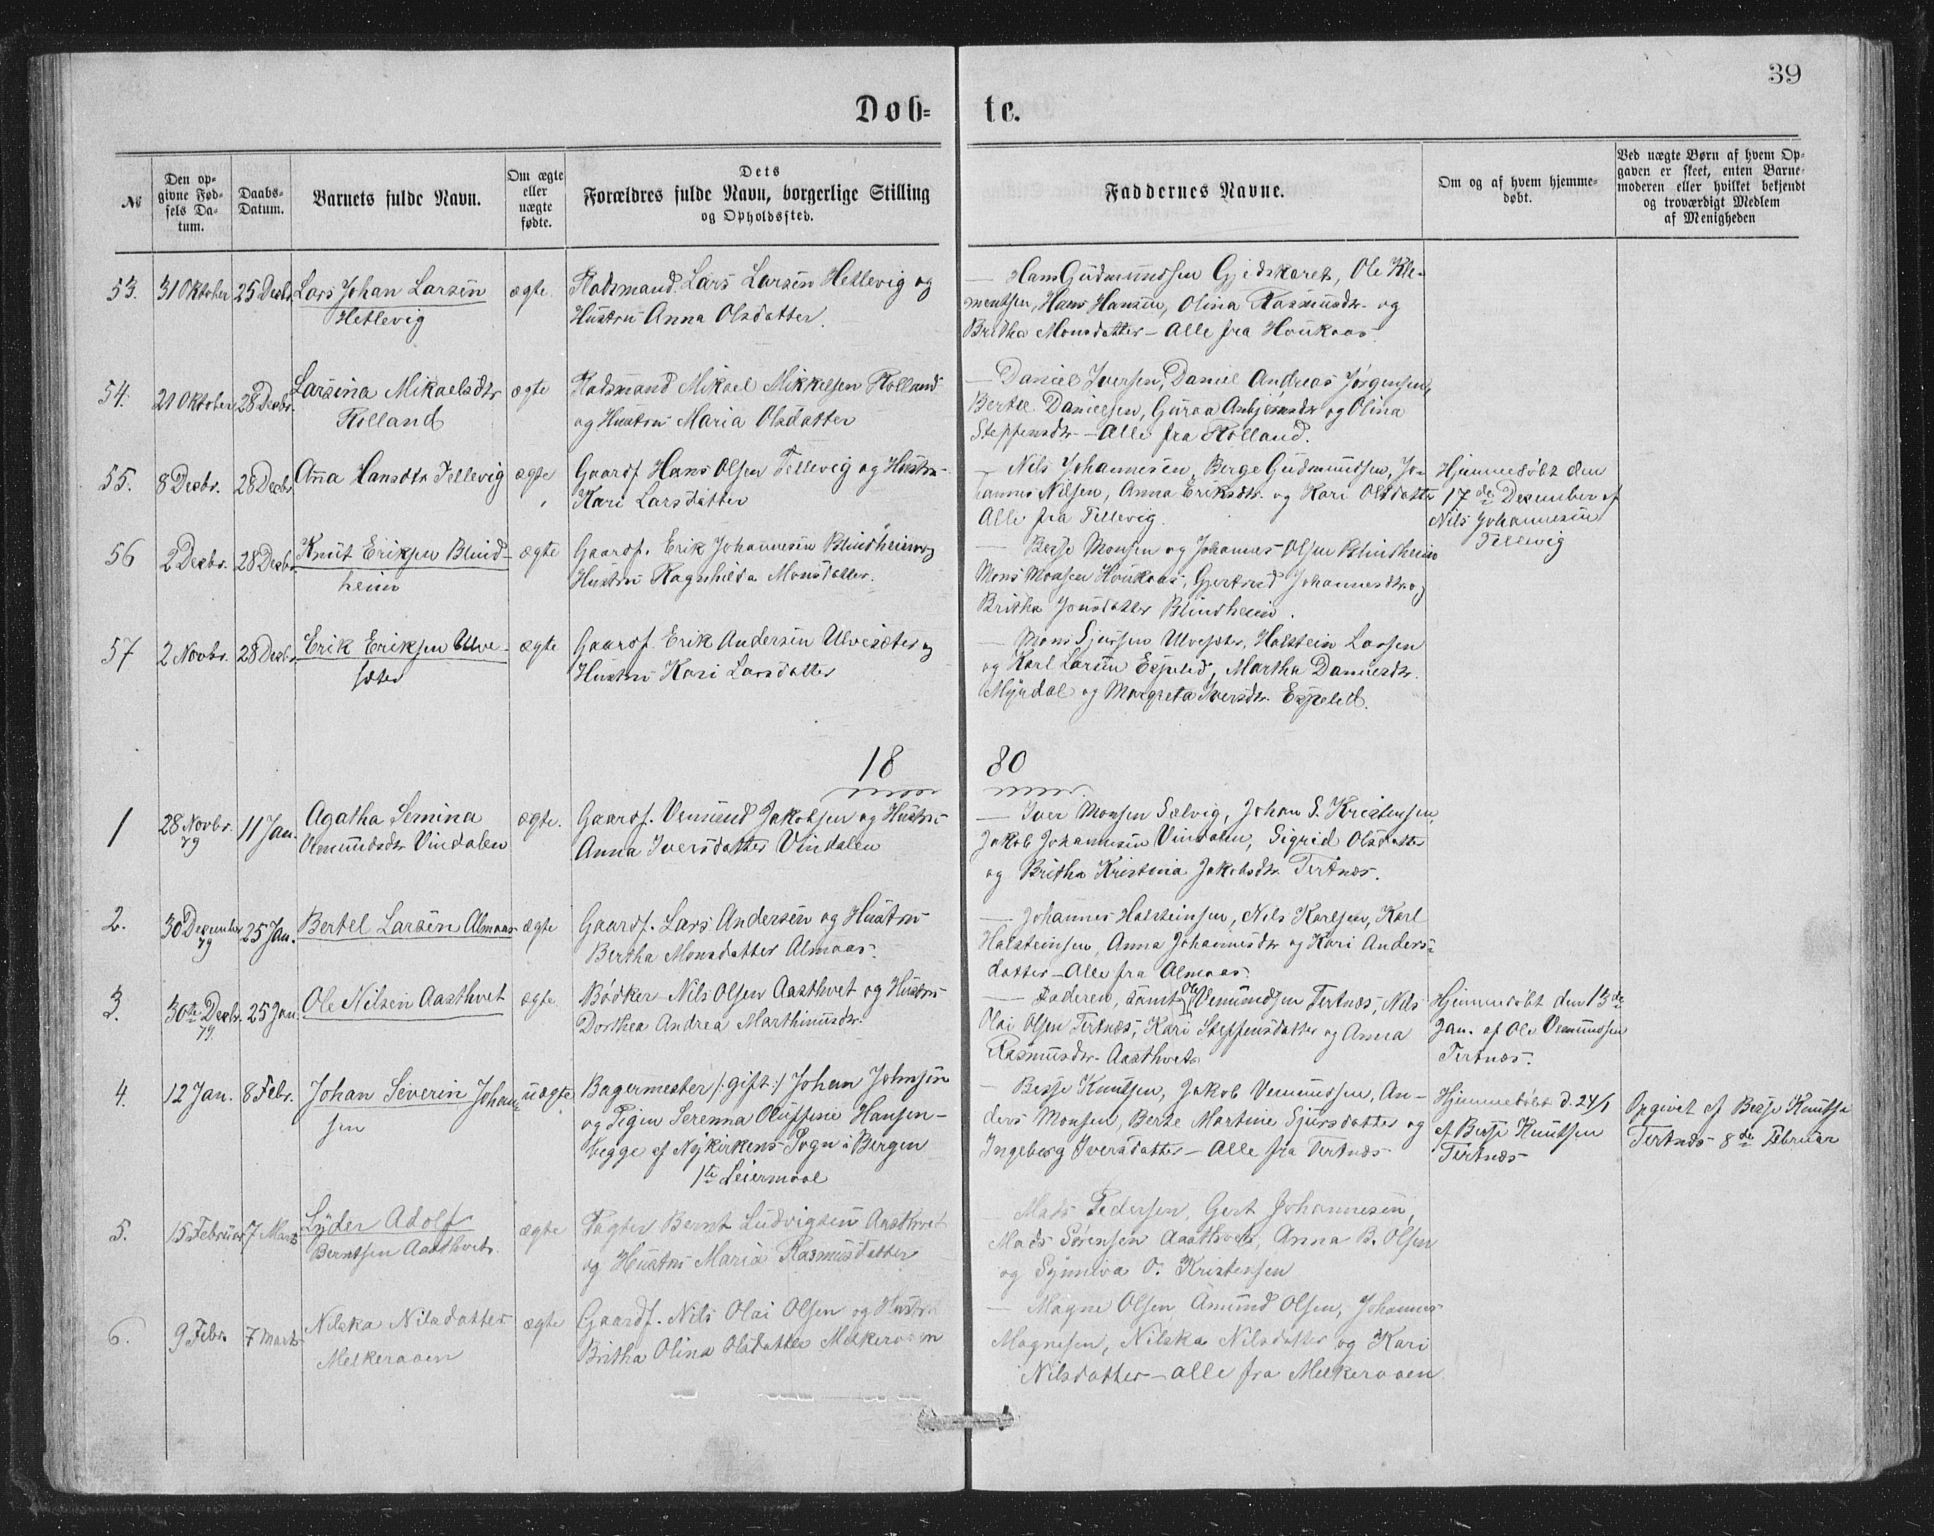 39
Døb= te.
№
Den op-
givne Fød-
sels Da-
tum.
Daabs-
Datum.
Barnets fulde Navn.
Om ægte
eller
uægte
fødte.
Dets
Forældres fulde Navn, borgerlige Stilling
og Opholdssted.
Faddernes Navne.
Om og af hvem hjemme-
døbt.
Ved uægte Børn af hvem Op-
gaven er skeet, enten Barne-
moderen eller hvilket bekjendt
og troværdigt Medlem
af Menigheden
53. 31 Oktober 25 Decbr. Lars Johan Larsen ægte. Husmand Lars Larsen Hetlevig og
Hetlevig Hustru Anna Olsdatter.
— Hans Gudmundsen Gjeidskaret, Ole Kle-
mentsen, Hans Hansen, Olina Rasmusdtr. og
Britha Monsdatter — Alle fra Houkaas.
54. 21 Oktober 28 Decbr. Larsina Mikaelsdtr ægte Husmand Mikael Mikkelsen Rolland
Rolland og Hustru Maria Olsdatter
— Daniel Iversen, Daniel Andreas Jørgensen,
Bertel Danielsen, Guroa Anbjørnsdr og Olina
Steffensdr — Alle fra Rolland.
55. 8 Decbr. 28 Decbr Anna Hansdtr Tellevig ægte Gaardf. Hans Olsen Tellevig og Hustru
Kari Larsdatter
— Nils Johannesen, Berge Gudmundsen, Jo-
hannes Nilsen, Anna Eriksdtr. og Kari Olsdatter
Alle fra Tellevig.
Hjemmedöbt den
17de December af
Nils Johannesen
Tellevig
56 2 Decbr. 28 Decbr. Knut Eriksen Blind- ægte Gaardf. Erik Johannesen Blindheim og
heim Hustru Ragnhilda Monsdatter.
— Besse Monsen og Johannes Olsen Blindheim
Mons Monsen Houkaas, Gjertrud Johannesdtr. og
Britha Jonsdatter Blindheim.
57 2 Novbr. 28 Decbr Erik Eriksen Ulve- ægte Gaardf. Erik Andersen Ulvesæter og
sæter Hustru Kari Larsdatter
— Mons Sjursen Ulvesæter, Halstein Larsen
og Karl Larsen Espelid, Martha Danielsdr.
Myrdal og Margreta Iversdr. Espelid.
18 80
1 28 Novbr. 11 Jan. Agatha Semina ægte. Gaardf. Vemund Jakobsen og Hustru
79 Vemundsdr Vindalen Anna Iversdatter Vindalen
— Iver Monsen Salvig, Johan S. Kristensen,
Jakob Johannesen Vindalen, Sigrid Olsdatter
og Britha Kristina Jakobsdr. Tertnæs.
2. 30 December 25 Jan. Bertel Larsen Almaas ægte Gaardf. Lars Andersen og Hustru
79 Bertha Monsdatter Almaas.
— Johannes Halsteinsen, Nils Karlsen, Karl
Halsteinsen, Anna Johannesdr og Kari Anders-
datter — Alle fra Almaas.
3. 30te Decbr. 25 Jan. Ole Nilsen Aasthvet ægte. Bödker Nils Olsen Aasthvet og Hustru
79. Dorthea Andrea Marthinusdr.
— Faderen, samt Ole Vemundsen Tertnæs, Nils
Olai Olsen Tertnæs, Kari Steffensdatter og Anna
Rasmusdr. Aasthvet.
Hjemmedöbt den 13de
Jan. af Ole Vemundsen
Tertnæs.
4. 12 Jan. 8 Febr. Johan Severin Johan- uægte Bagermester /:gift:/ Johan Johnsen
sen og Pigen Serenna Oluffine Hansen —
Begge af Nykirkens Sogn i Bergen
1te Leiermaal
— Besse Knutsen, Jakob Vemundsen, An-
ders Monsen, Berte Martine Sjursdatter og
Ingeborg Iversdatter — Alle fra Tertnæs
Hjemmedöbt d. 24/1
af Besse Knutsen
Tertnæs
Opgivet af Besse Knutsen
Tertnæs 8de Februar
5. 15 Februar 7 Marts Lyder Adolf ægte Fagter Bernt Ludvigsen Aasthvet
Berntsen Aasthvet. og Hustru Maria Rasmusdatter
— Mads Pedersen, Gert Johannesen,
Mads Sørensen Aasthvet, Anna B. Olsen
og Synneva O. Kristensen
6. 9 Febr. 7 Marts Nilska Nilsdatter ægte Gaardf. Nils Olai Olsen og Hustru
Melkeraaen Britha Olina Olsdatter Melkeraaen
— Magne Olsen, Amund Olsen, Johannes
Magnesen, Nilska Nilsdatter og Kari
Nilsdatter — alle fra Melkeraaen